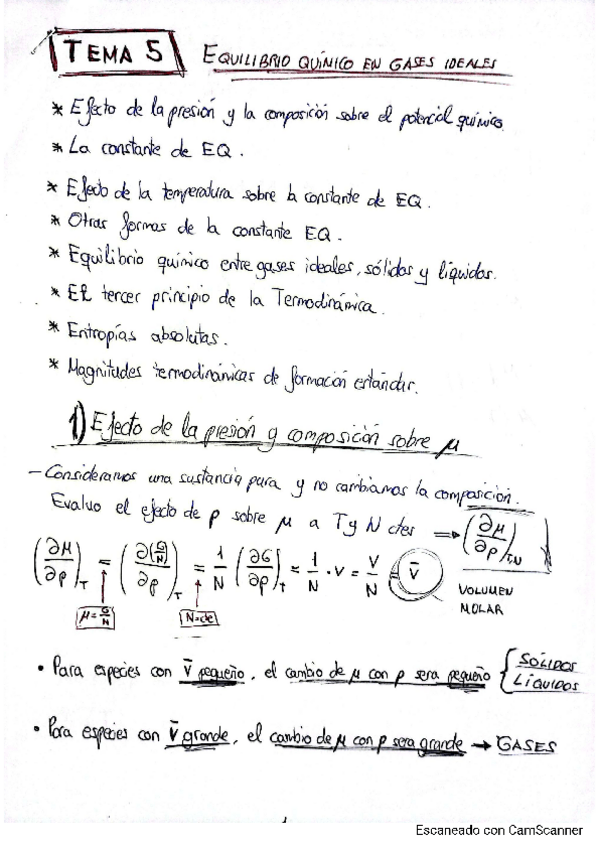 TEMA 5 EQUILIBRIO QUÍMICO EN GASES IDEALES
* Efecto de la presión y la composición sobre el potencial químico.
* La constante de EQ.
* Efecto de la temperatura sobre la constante de EQ.
* Otras formas de la constante EQ.
* Equilibrio químico entre gases ideales, sólidos y líquidos.
* El tercer principio de la Termodinámica.
* Entropías absolutas.
* Magnitudes termodinámicas de formación estándar.
1) Efecto de la presión y composición sobre μ
- Consideramos una sustancia pura y no cambiamos la composición.
Evaluo el efecto de p sobre μ a T y N ctes ⇒ (∂μ/∂p)T,N
(∂μ/∂p)T = (∂(G/N)/∂p)T = 1/N (∂G/∂p)T = 1/N · V = V/N = V̄
μ = G/N N=cte VOLUMEN
MOLAR
• Para especies con V̄ pequeño, el cambio de μ con p sera pequeño { SÓLIDOS
LÍQUIDOS
• Para especies con V̄ grande, el cambio de μ con p sera grande → GASES
1
Escaneado con CamScanner